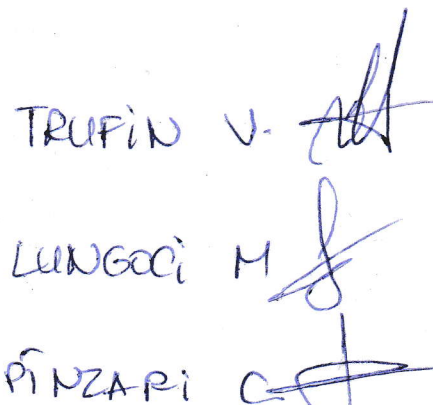 TRUFiN V.
LUNGOCi M
PÎNZARi C.